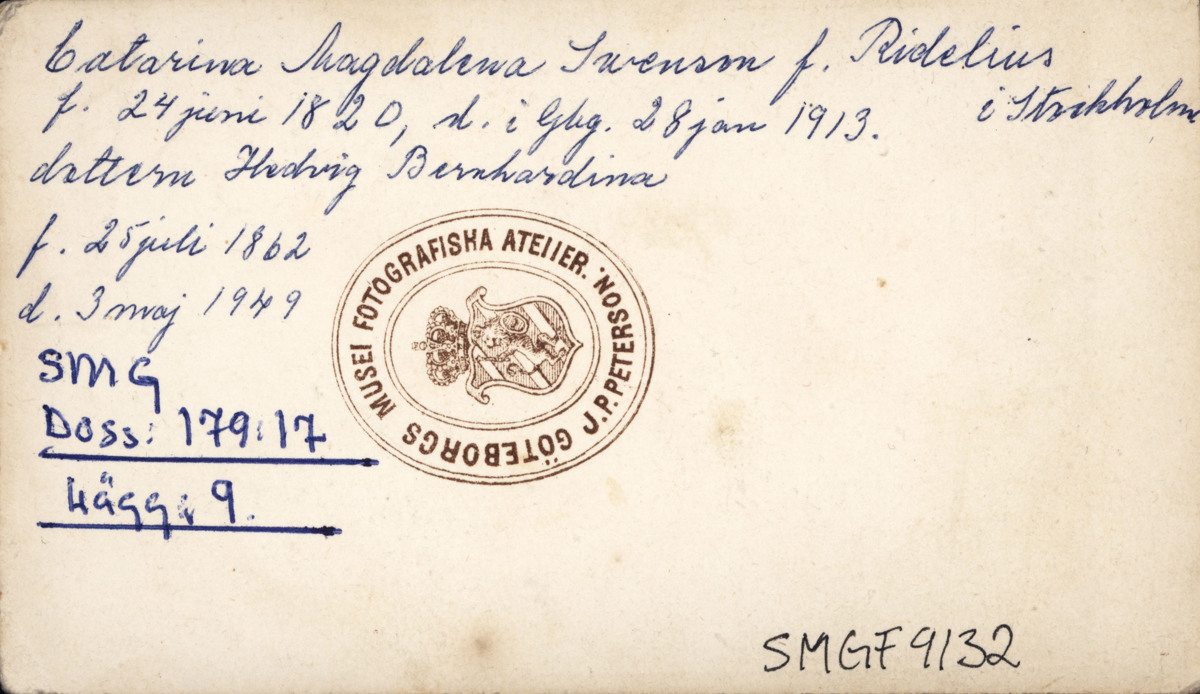 Catarina Magdalena Swenson f. Ridelius
i Stockholm
f. 24 juni 1820, d. i Gbg. 28 jan 1913.
dottern Hedvig Bernhardina
f. 25 juli 1862
d. 3 maj 1949
SMG
Doss: 179:17
Lägg: 9.
GÖTEBORGS MUSEI FOTOGRAFISKA ATELIER. J.P. PETERSSON.
SMGF 9132